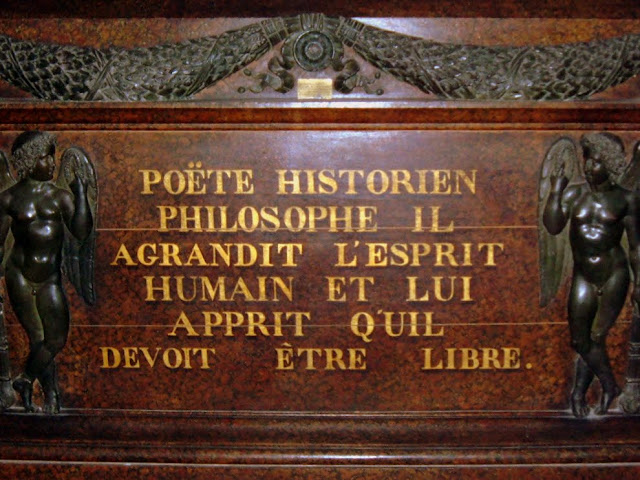 POËTE HISTORIEN
PHILOSOPHE IL
AGRANDIT L'ESPRIT
HUMAIN ET LUI
APPRIT Q'UIL
DEVOIT ÊTRE LIBRE.